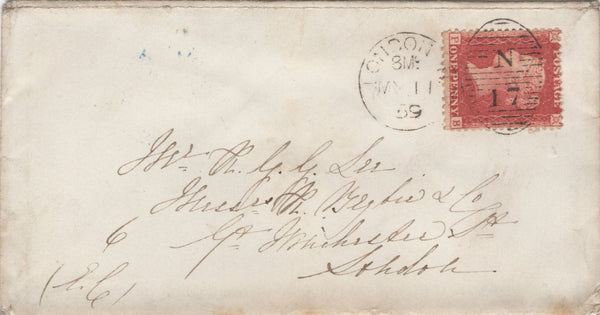 LONDON
8M
MY 11
59
N
17
POSTAGE
ONE PENNY
B
Mr. H. G. G. Lee
Messrs H. & Co
6 Gt. Winchester St
London.
(E.C.)